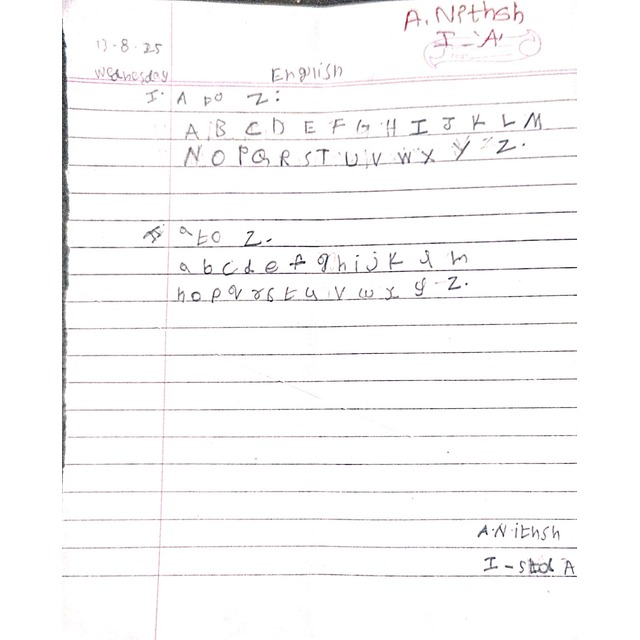 A. Nithsh
I - 'A'
13-8-25
Wednesday
English
I. A to Z:
A B C D E F G H I J K L M
N O P Q R S T U V W X Y Z.
II. a to Z.
a b c d e f g h i j k l m
n o p q r s t u v w x y z.
A.Nithsh
I - std A